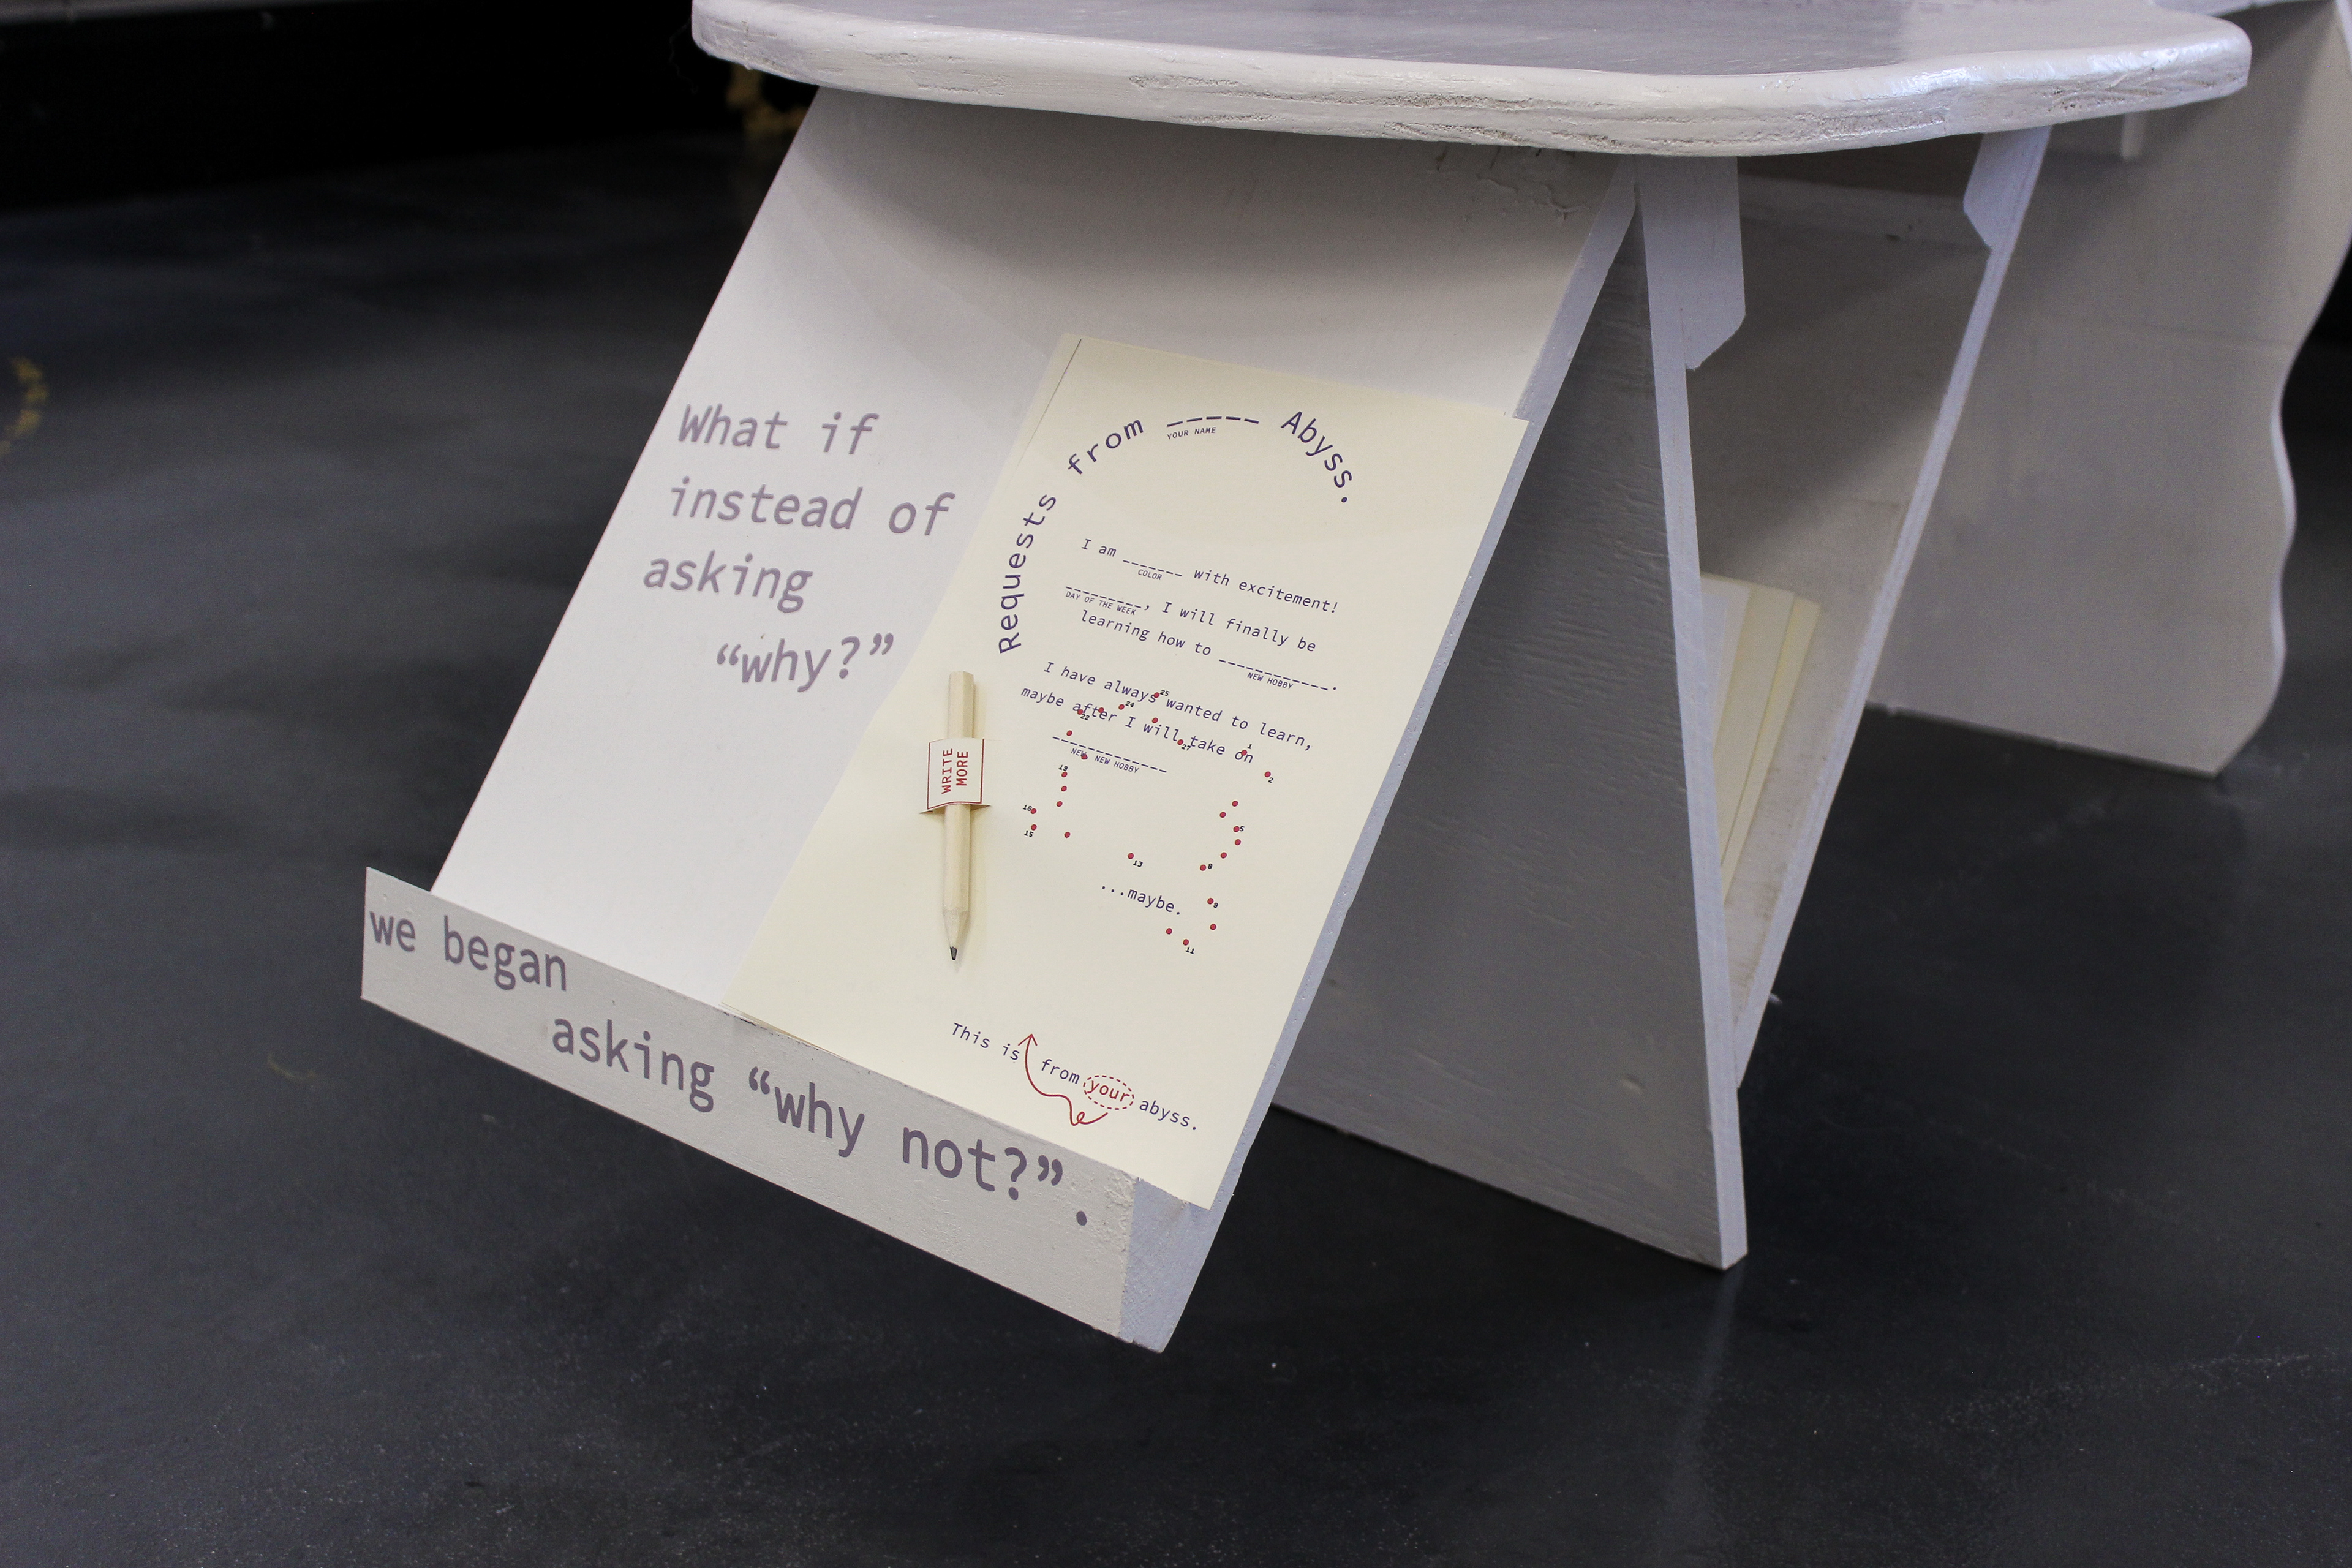 What if
instead of
asking
“why?”
we began
asking “why not?”.
Requests from ------ Abyss.
YOUR NAME
I am _______ with excitement!
COLOR
_________, I will finally be
DAY OF THE WEEK
learning how to ___________.
NEW HOBBY
I have always wanted to learn,
maybe after I will take on
___________
NEW NEW HOBBY
25
24
22
27
1
2
19
16
15
5
8
13
9
11
...maybe.
WRITE
MORE
This is from your abyss.